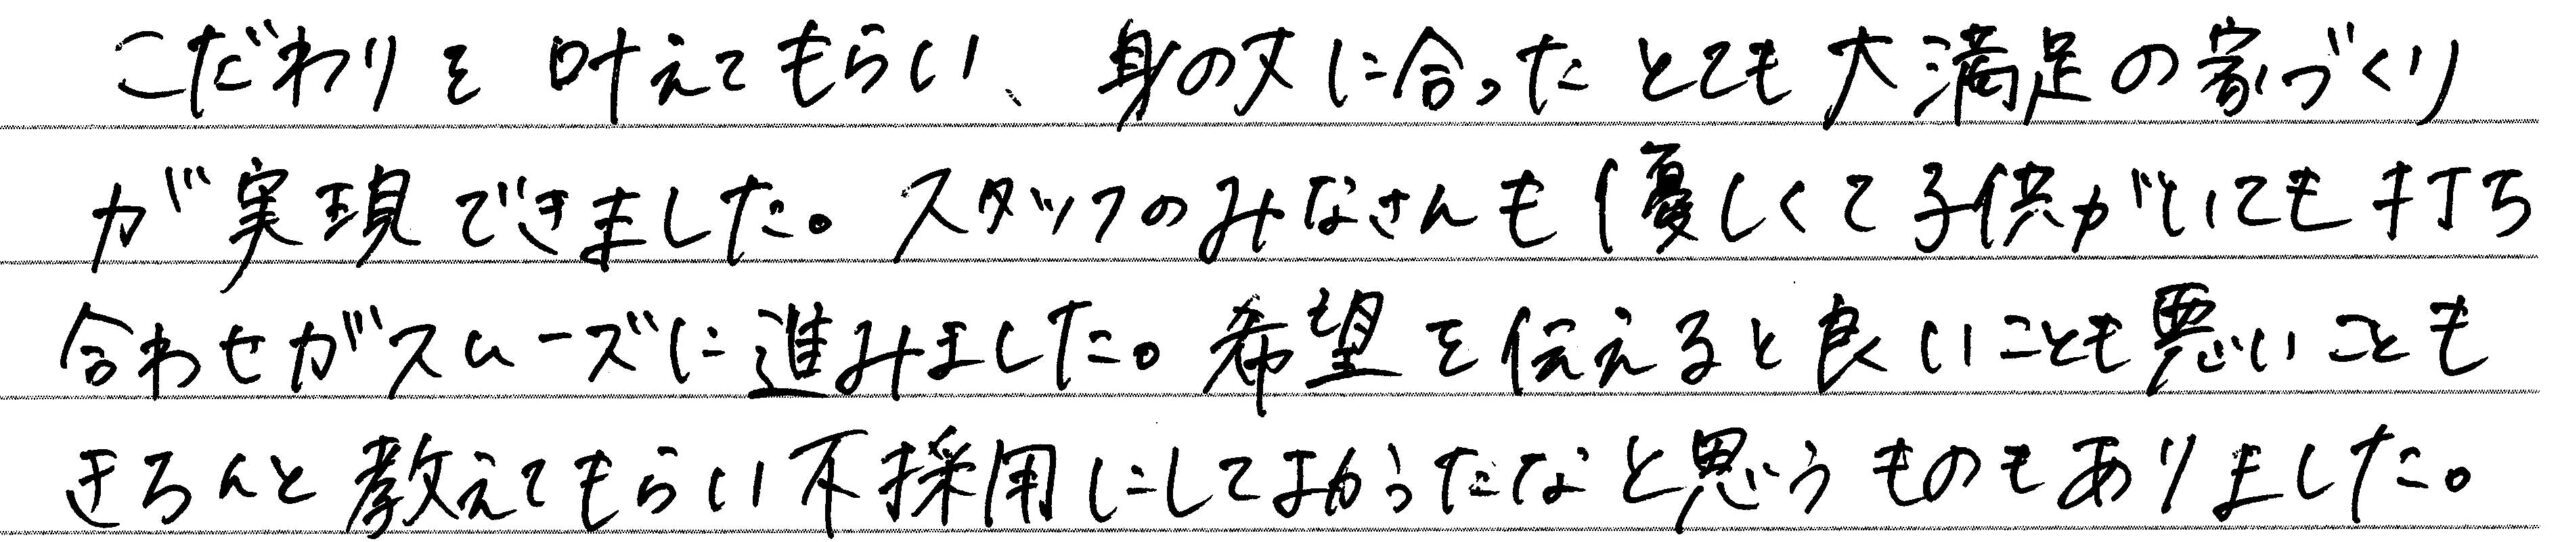 こだわりを叶えてもらい、身の丈に合ったとても大満足の家づくり
が実現できました。スタッフのみなさんも優しくて子供がいても打ち
合わせがスムーズに進みました。希望を伝えると良いことも悪いことも
きちんと教えてもらい不採用にしてよかったなと思うものもありました。